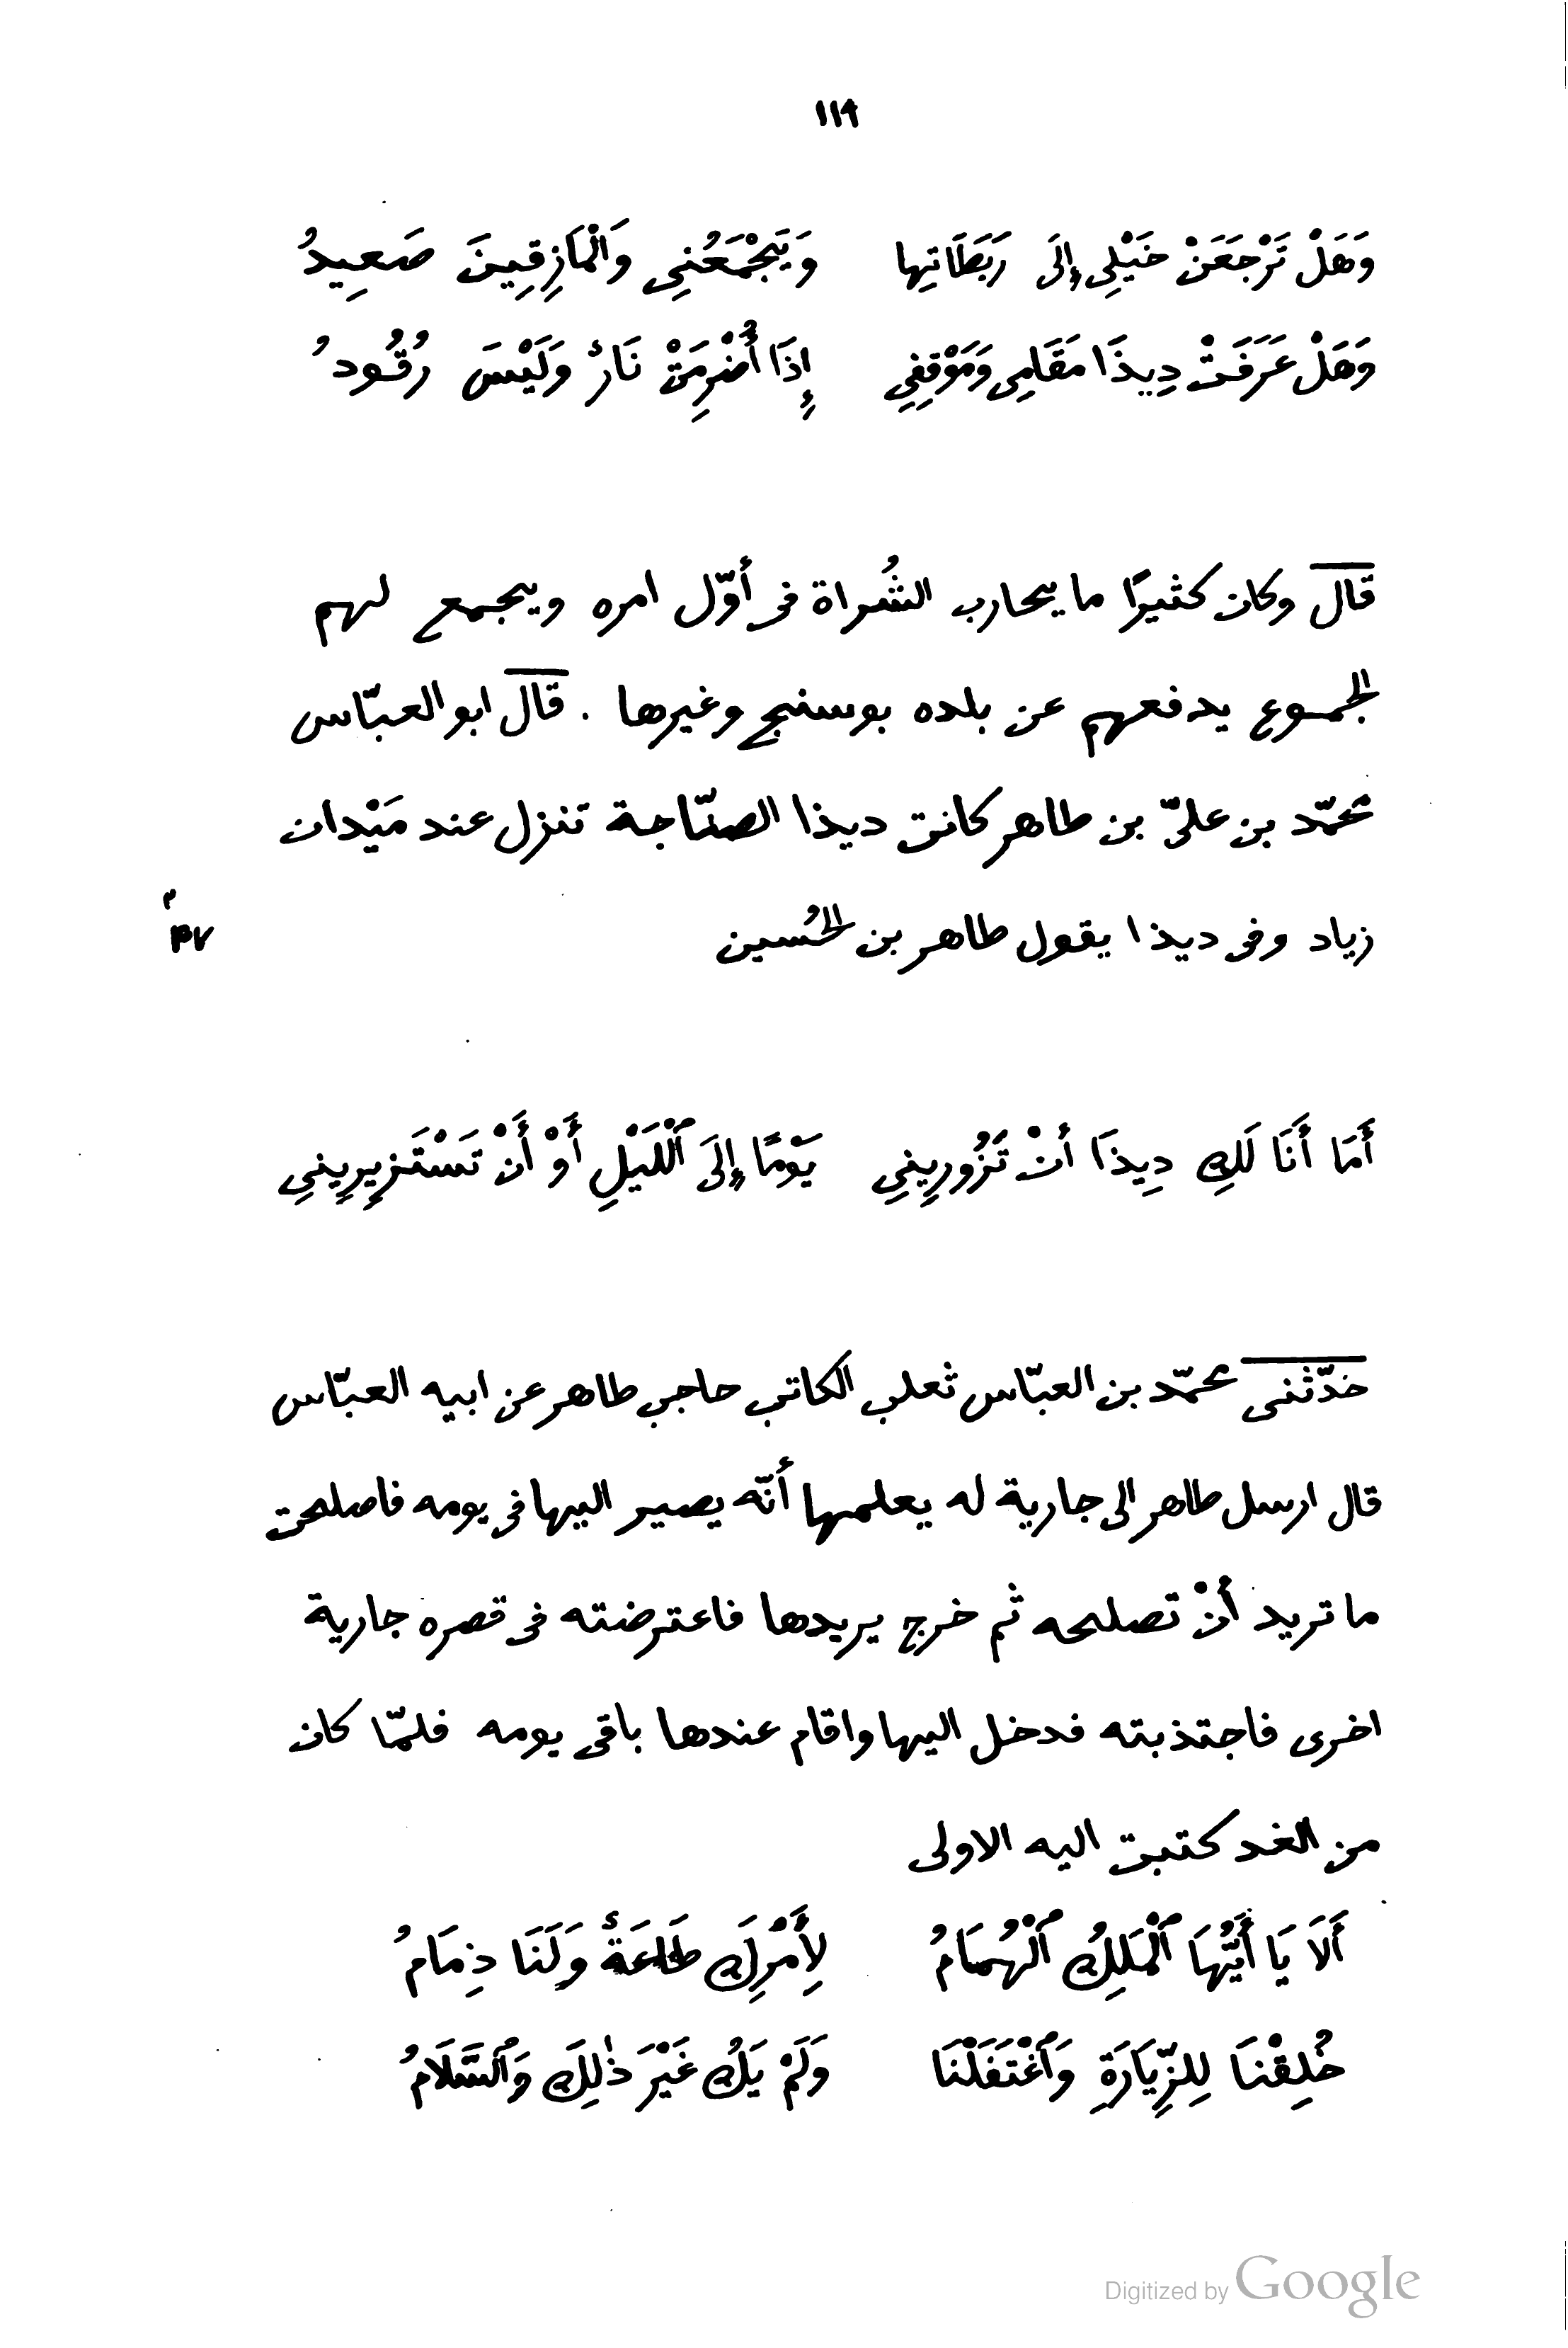 ١١٩
وَهَلْ تَرْجَعَنْ خَيْلِى إِلَى رَبَطَاتِها وَيَجْمَعُنِى وَالْمَازِقِينَ صَعِيدُ
وَهَلْ عَرَفَتْ دِيذَا مَقَامِى وَمَوْقِفِى إِذَا أُضْرِمَتْ نَارٌ وَلَيْسَ رُقُودُ
قال وكان كثيرًا ما يحارب الشُراة فى أوّل امره ويجمع لهم
الجموع يدفعهم عن بلده بوسنج وغيرها . قال ابو العبّاس
محمّد بن علىّ بن طاهر كانت ديذا الصنّاجة تنزل عند مَيْدان
زياد وفى ديذا يقول طاهر بن الحُسين
أَمَا أَنَا لَكِ دِيذَا أنْ تَزُورِينِى يَوْمًا إِلَى ٱللَّيْلِ أَوْ أَنْ تَسْتَزِيرِينِى
حدّثنى محمّد بن العبّاس ثعلب الكاتب حاجب طاهر عن ابيه العبّاس
قال ارسل طاهر الى جارية له يعلمها أنّه يصير اليها فى يومه فاصلحت
ما تريد أنْ تصلحه ثم خرج يريدها فاعترضته فى قصره جارية
اخرى فاجتذبته فدخل اليها واقام عندها باقى يومه فلمّا كان
من الغد كتبت اليه الاولى
أَلَا يَا أَيُّهَا ٱلْمَلِكُ ٱلْهُمَامُ لِأَمْرِكَ طَاعَةٌ وَلَنَا ذِمَامُ
خُلِقْنَا لِلزِّيَارَةِ وَٱغْتَفَلْنَا وَلَمْ يَكُ غَيْرَ ذٰلِكَ وَٱلسَّلَامُ
Digitized by Google